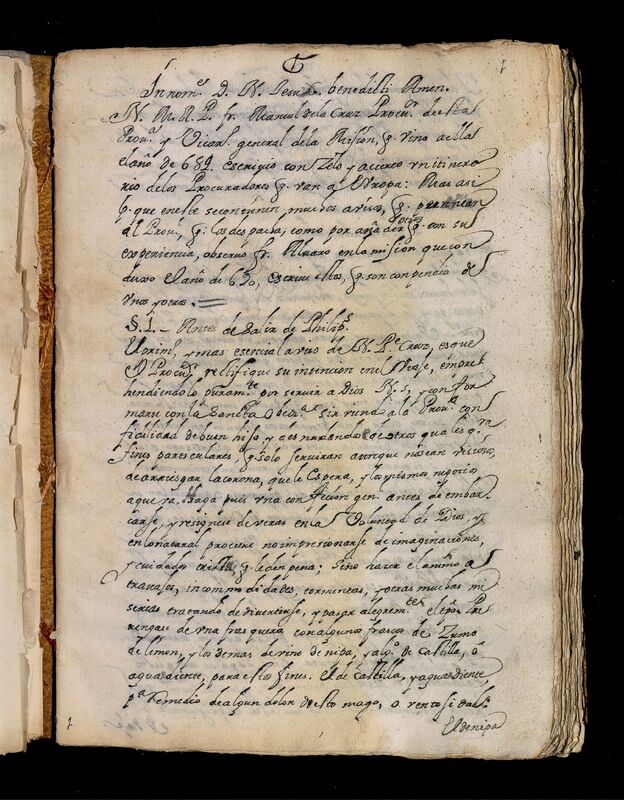 In nom.e D. N. Jesu X. benedicti Amen.
N. M. R. P. fr. Manuel de la Cruz Procu.or de esta
Prou.a y Vicar.o general de la Mision, q. vino a ella
el año de 689. escriuio con zelo y acierto vn itinera
rio de los Procuradores q. van a Europa: Mas asi
p. que en este se contienen, muchos auisos, q.
al Prou.l, q. los despacha, como por añadir otros q. con su
experiencia, obseruo fr. Alvaro en la mision que con
duxo el año de 690, escriui estos, q. son conpendio de
vnos y otros.
§. 1. - Antes de salir de Philip.s
El prim.o, y mas esencial auiso de N. P.e Cruz, es que
el Procu.or rectifique su intencion en el viaje, empre
hendiendolo puram.te por seruir a Dios N. S., y confor
marse con la Santa Obed.a siruiendo a la Prou.a con
fidalidad de buen hijo, y desnudandose de otros qualesq.ra
fines particulares, q. solo seruiran aunque no sean viciosos,
de arriesgar la corona, que le espera, y los mismos negocios
a que va. Haga pues vna confesion gen.l antes de embar
carse, y resignese de veras en la Voluntad de Dios, y
en lo natural procure no impresionarse de imaginaciones,
y cuidados tristes, q. le den pena; sino hazer el animo a
trauajos, incommodidades, tormentas, y otras muchas mi
serias tratando de diuertirse, y pasar alegrem.te el tpo. Pre
uengase de vna frasquera con algunos frascos de Zumo
de limon, y los demas de vino de nipa, y alg.o de Castilla, o
aguardiente, para estos fines. El de Castilla, y aguardiente
p.a Remedio de algun dolor de estomago, o ventosidad:
El de nipa